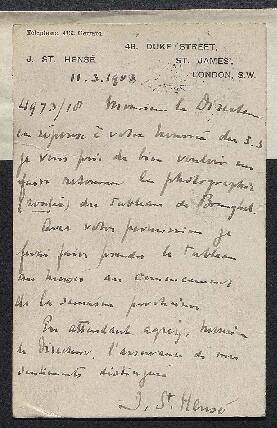 Telephone 402 Gerrard
48, DUKE STREET,
J. ST. HENSÉ
ST. JAMES',
11.3.1908
LONDON, S.W.
4973/18 Monsieur le Directeur
en réponse à votre honorée du 3.3
je vous prie de bien vouloir me
faire retourner la photographie
du tableau de Brueghel.
Avec votre permission je
ferai faire prendre le tableau
au musée au commencement
de la semaine prochaine
En attendant agréez, Monsieur
le Directeur, l'assurance de mes
sentiments distingués
J. St Hensé